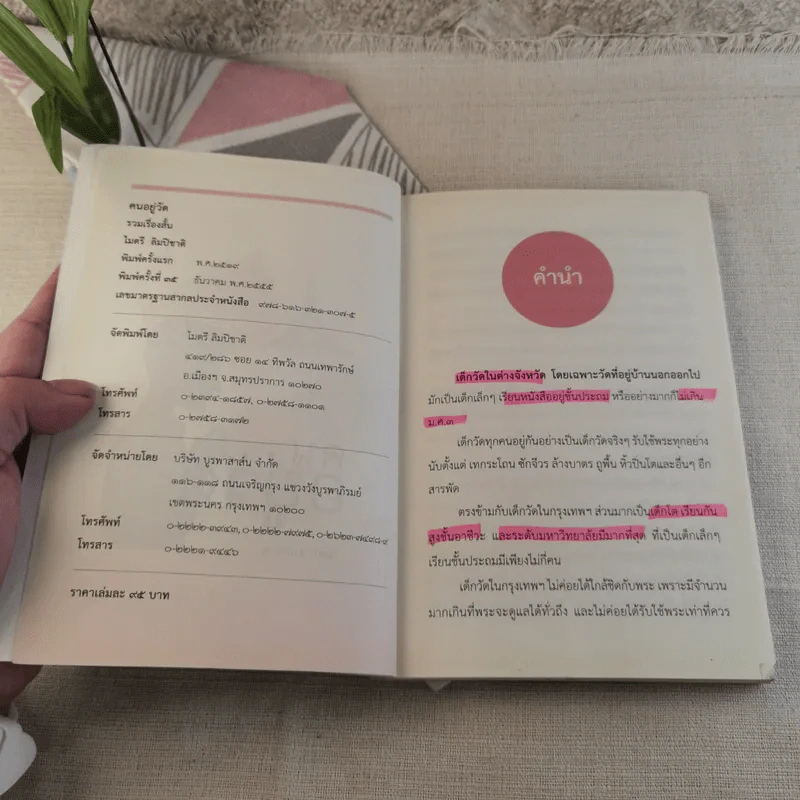 คนอยู่วัด
รวมเรื่องสั้น
ไมตรี ลิมปิชาติ
พิมพ์ครั้งแรก พ.ศ.๒๕๑๙
พิมพ์ครั้งที่ ๓๕ ธันวาคม พ.ศ.๒๕๕๕
เลขมาตรฐานสากลประจำหนังสือ ๙๗๘-๖๑๖-๓๒๑-๓๐๗-๕
จัดพิมพ์โดย ไมตรี ลิมปิชาติ
๔๑๙/๒๘๖ ซอย ๑๔ ทิพวัล ถนนเทพารักษ์
อ.เมืองฯ จ.สมุทรปราการ ๑๐๒๗๐
โทรศัพท์ ๐-๒๓๙๔-๑๘๕๗, ๐-๒๗๕๘-๑๑๐๑
โทรสาร ๐-๒๗๕๘-๓๑๗๒
จัดจำหน่ายโดย บริษัท บูรพาสาส์น จำกัด
๑๑๖-๑๑๘ ถนนเจริญกรุง แขวงวังบูรพาภิรมย์
เขตพระนคร กรุงเทพฯ ๑๐๒๐๐
โทรศัพท์ ๐-๒๒๒๒-๓๙๔๓, ๐-๒๒๒๒-๗๙๗๕, ๐-๒๖๒๓-๗๔๙๘-๙
โทรสาร ๐-๒๒๒๑-๙๔๔๖
ราคาเล่มละ ๙๕ บาท
คำนำ
เด็กวัดในต่างจังหวัด โดยเฉพาะวัดที่อยู่บ้านนอกออกไป
มักเป็นเด็กเล็กๆ เรียนหนังสืออยู่ชั้นประถม หรืออย่างมากก็ไม่เกิน
ม.ศ.๓
เด็กวัดทุกคนอยู่กันอย่างเป็นเด็กวัดจริงๆ รับใช้พระทุกอย่าง
นับตั้งแต่ เทกระโถน ซักจีวร ล้างบาตร ถูพื้น หิ้วปิ่นโตและอื่นๆ อีก
สารพัด
ตรงข้ามกับเด็กวัดในกรุงเทพฯ ส่วนมากเป็นเด็กโต เรียนกัน
สูงชั้นอาชีวะ และระดับมหาวิทยาลัยมีมากที่สุด ที่เป็นเด็กเล็กๆ
เรียนชั้นประถมมีเพียงไม่กี่คน
เด็กวัดในกรุงเทพฯ ไม่ค่อยได้ใกล้ชิดกับพระ เพราะมีจำนวน
มากเกินที่พระจะดูแลได้ทั่วถึง และไม่ค่อยได้รับใช้พระเท่าที่ควร